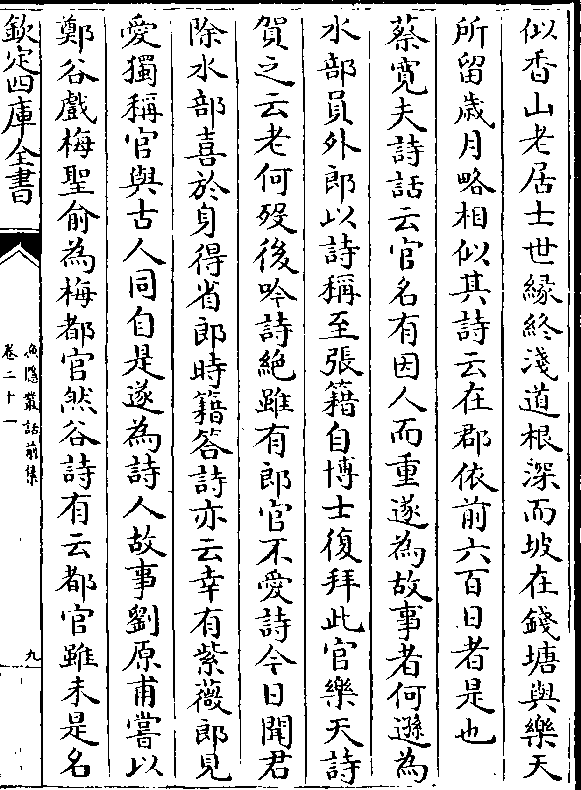 似香山老居士世縁終淺道根深而坡在錢塘與樂天
所留歳月略相似其詩云在郡依前六百日者是也
蔡寛夫詩話云官名有因人而重遂為故事者何遜為
水部員外郎以詩稱至張籍自博士復拜此官樂天詩
賀之云老何歿後吟詩絕雖有郎官不愛詩今日聞君
除水部喜於身得省郎時籍答詩亦云幸有紫薇郎見
愛獨稱官與古人同自是遂為詩人故事劉原甫嘗以
鄭谷戲梅聖俞為梅都官然谷詩有云都官雖未是名
欽定四庫全書
漁隱叢話前集
卷二十一
九